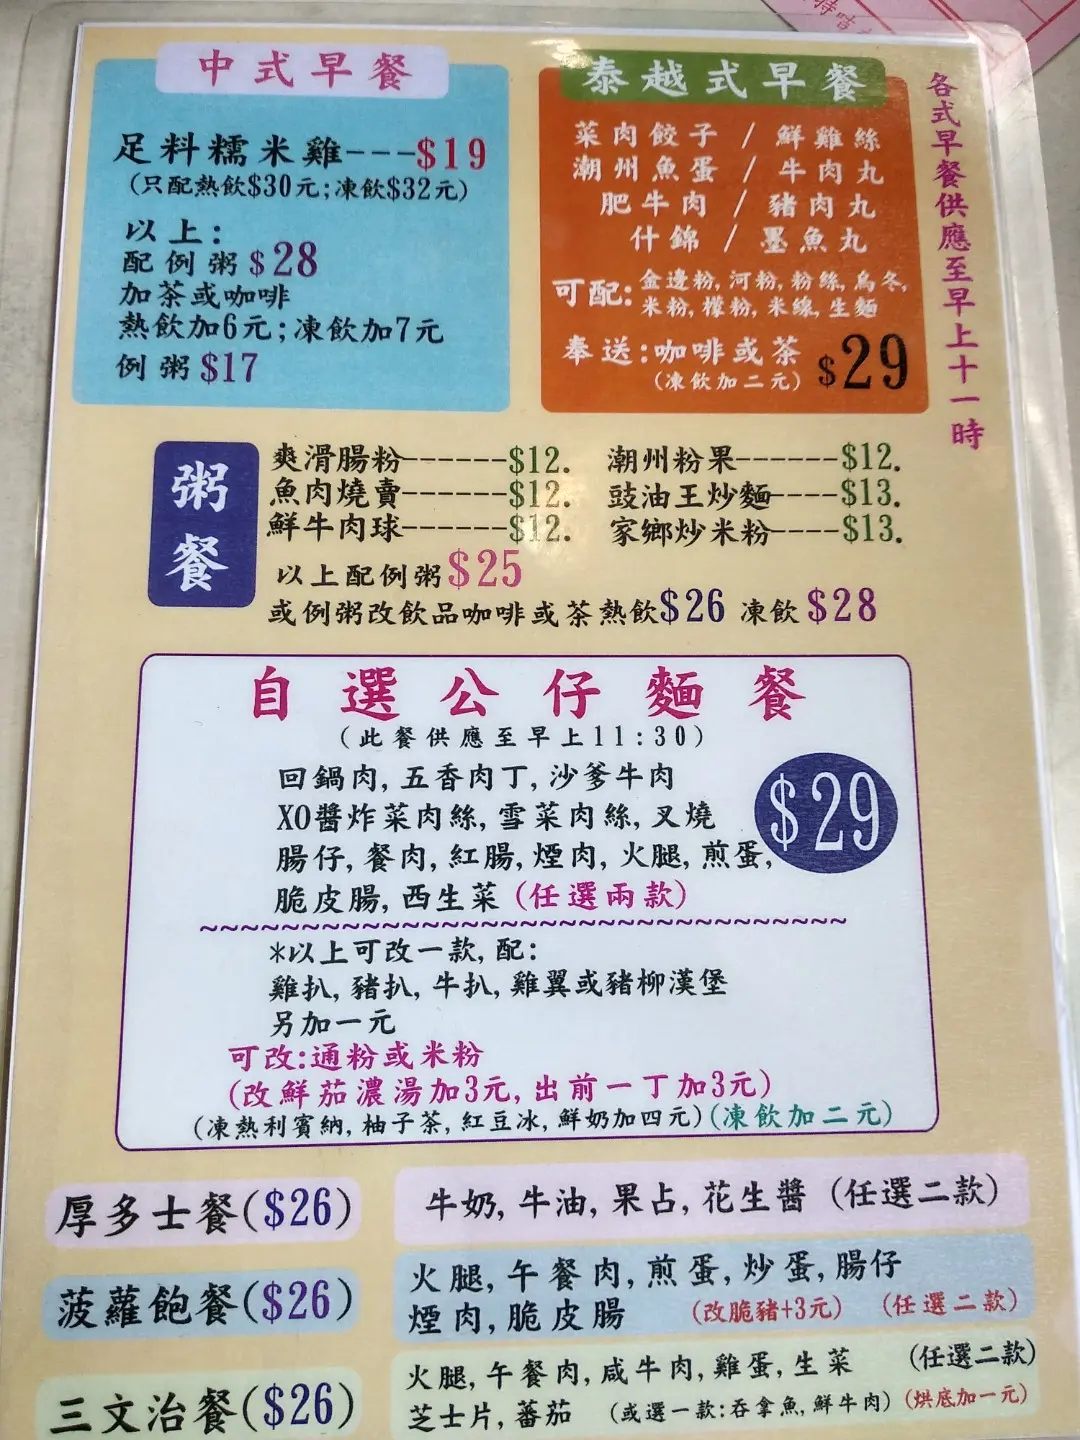 中式早餐
足料糯米雞---$19
(只配熱飲$30元;凍飲$32元)
以上:
配例粥$28
加茶或咖啡
熱飲加6元;凍飲加7元
例粥$17
泰越式早餐
菜肉餃子 / 鮮雞絲
潮州魚蛋 / 牛肉丸
肥牛肉 / 豬肉丸
什錦 / 墨魚丸
可配:金邊粉,河粉,粉絲,烏冬,
米粉,檬粉,米線,生麵
奉送:咖啡或茶 $29
(凍飲加二元)
各式早餐供應至早上十一時
粥餐
爽滑腸粉------$12.
魚肉燒賣------$12.
鮮牛肉球------$12.
潮州粉果------$12.
豉油王炒麵----$13.
家鄉炒米粉----$13.
以上配例粥$25
或例粥改飲品咖啡或茶熱飲$26 凍飲$28
自選公仔麵餐
(此餐供應至早上11:30)
$29
回鍋肉,五香肉丁,沙爹牛肉
XO醬炸菜肉絲,雪菜肉絲,叉燒
腸仔,餐肉,紅腸,煙肉,火腿,煎蛋,
脆皮腸,西生菜(任選兩款)
~~~~~~~~~~~~~~~~~~~~~~~~~~~~~~
*以上可改一款,配:
雞扒,豬扒,牛扒,雞翼或豬柳漢堡
另加一元
可改:通粉或米粉
(改鮮茄濃湯加3元,出前一丁加3元)
(凍熱利賓納,柚子茶,紅豆冰,鮮奶加四元)(凍飲加二元)
厚多士餐($26)
牛奶,牛油,果占,花生醬(任選二款)
菠蘿飽餐($26)
火腿,午餐肉,煎蛋,炒蛋,腸仔
煙肉,脆皮腸 (改脆豬+3元) (任選二款)
三文治餐($26)
火腿,午餐肉,咸牛肉,雞蛋,生菜 (任選二款)
芝士片,蕃茄 (或選一款:吞拿魚,鮮牛肉)(烘底加一元)